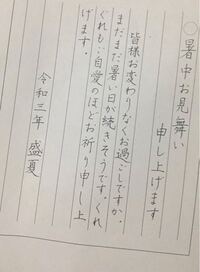 ○暑中お見舞い
申し上げます
皆様お変わりなくお過ごしですか。
まだまだ暑い日が続きそうです。くれ
ぐれも…自愛のほどお祈り申し上
げます。
令和三年 盛夏